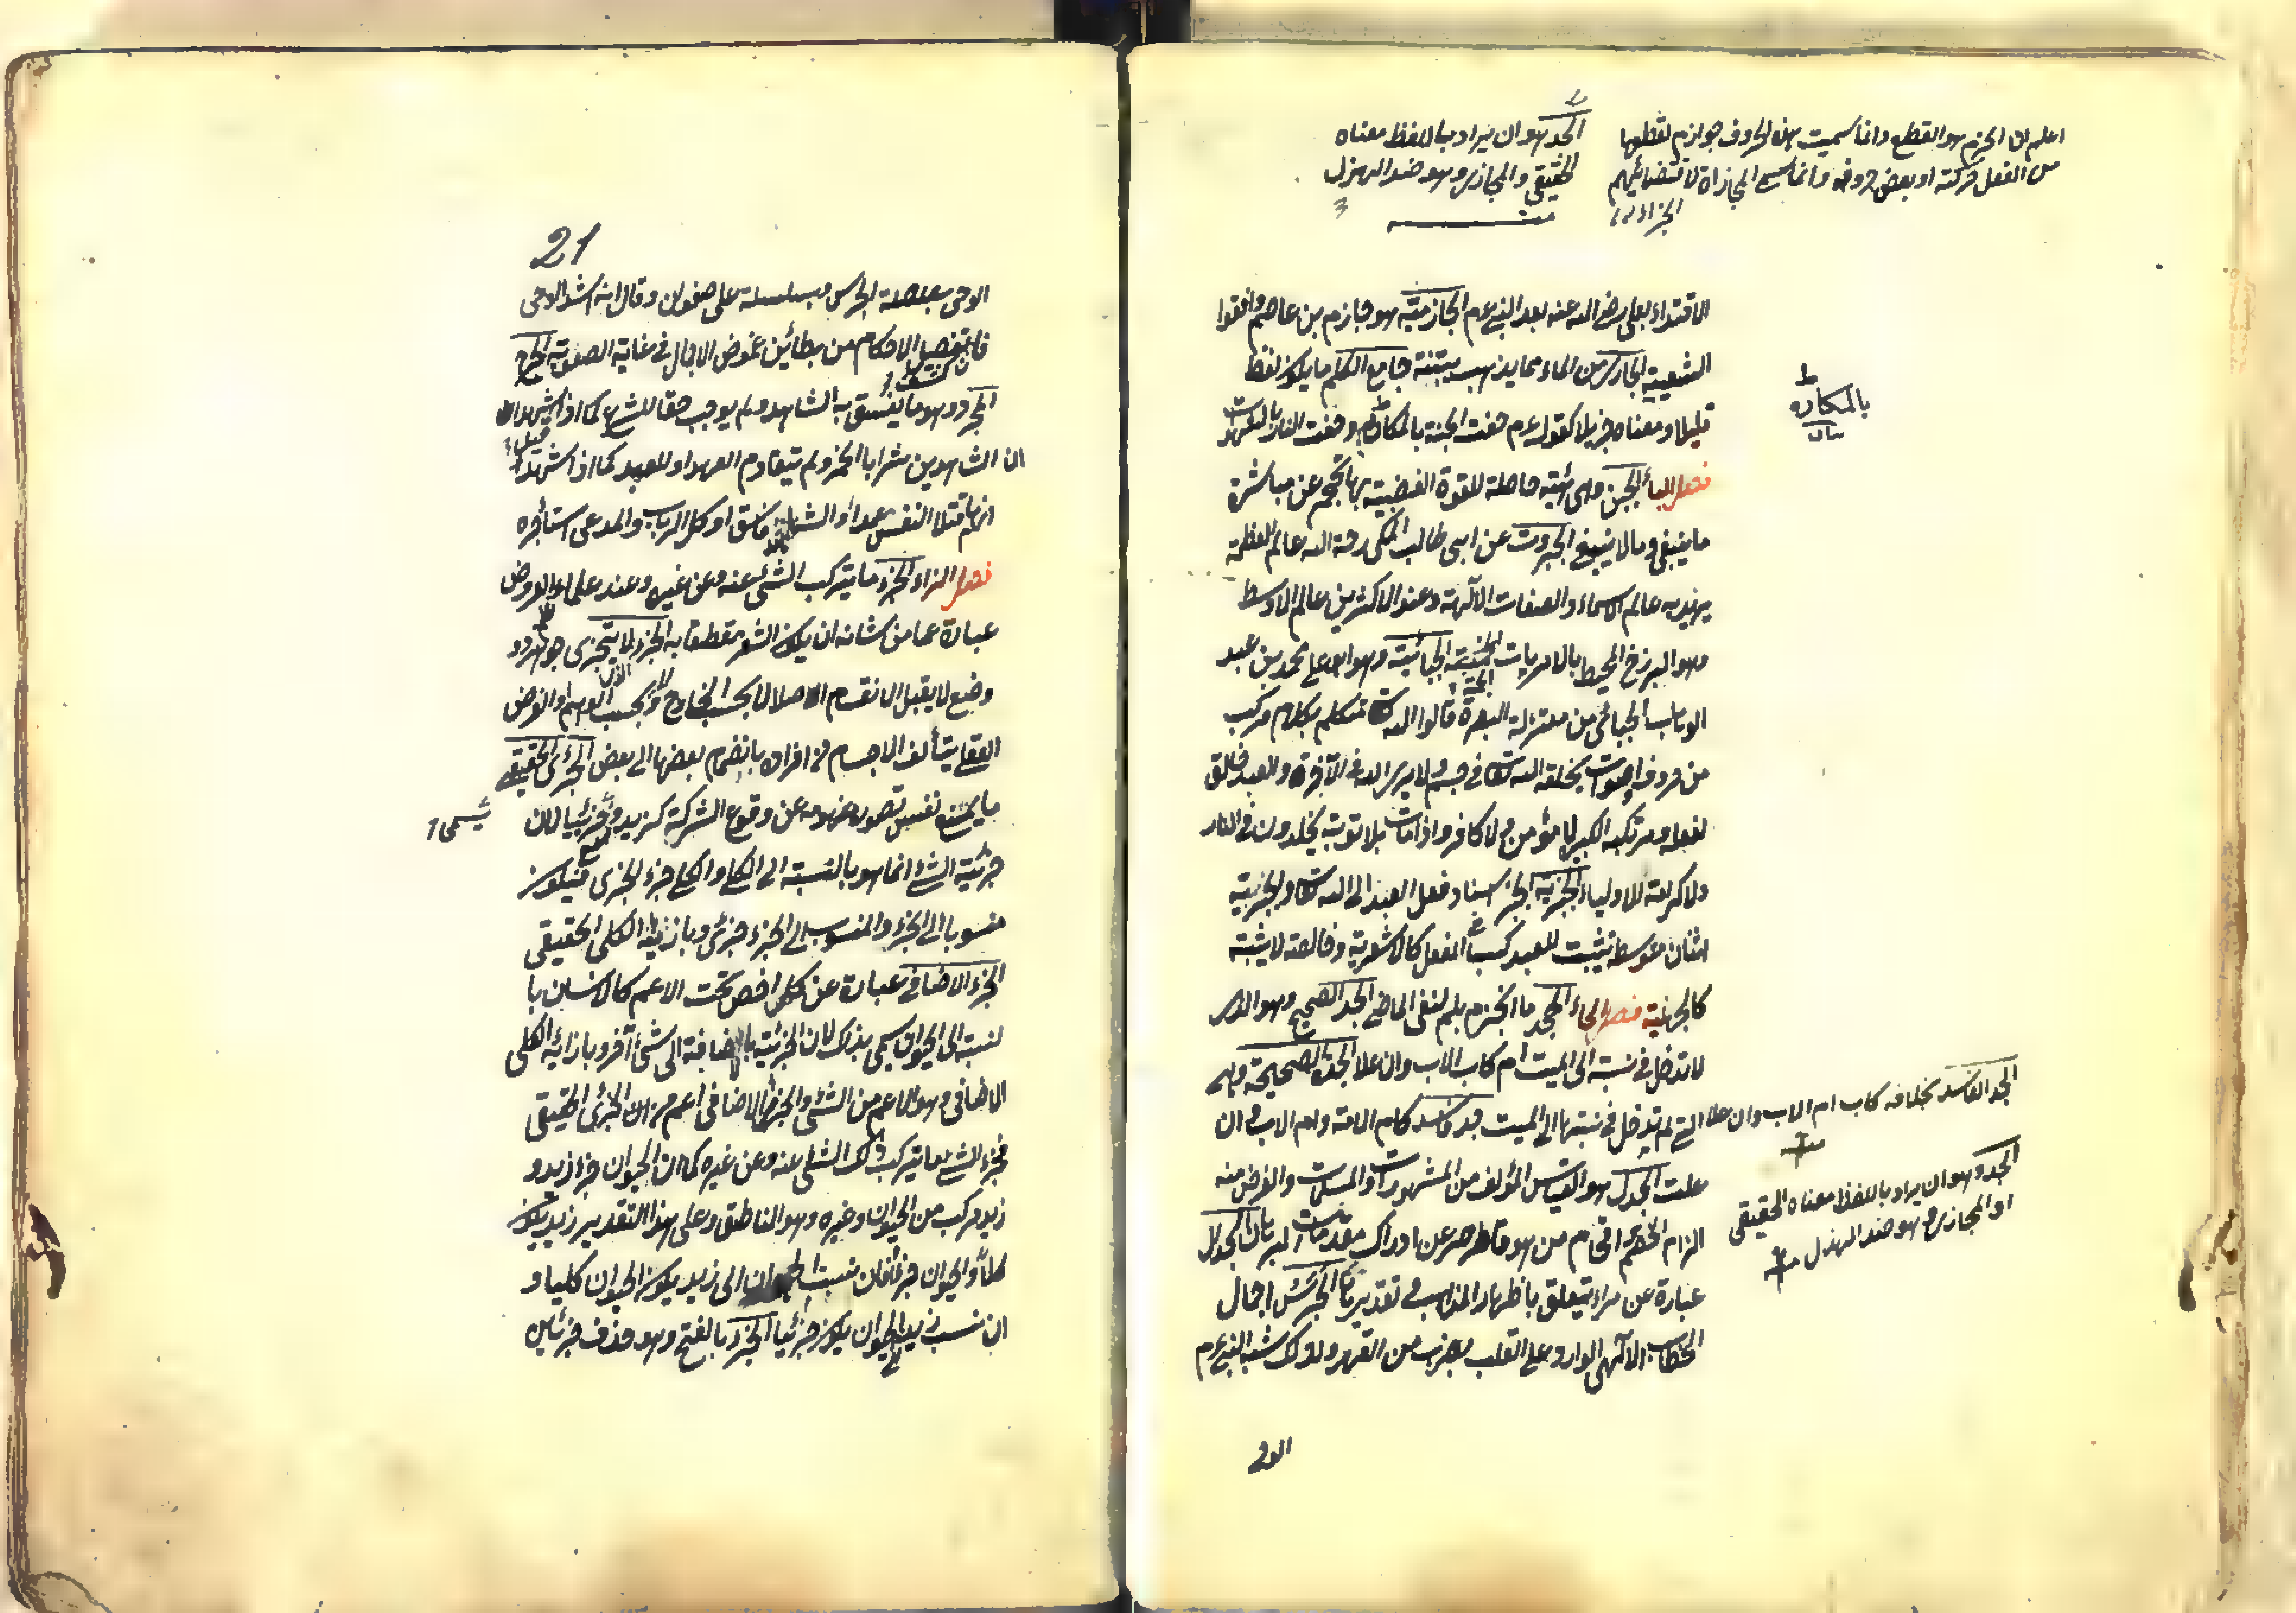 اعلم ان الجزم هو القطع وانما سميت هذه الحروف جوازم لقطعها
من الفعل حركته او بعض حروفه وانما سمى المجازاة لاقتضائهم
الجزاء
الجد هو ان يراد باللفظ معناه
الحقيقي والمجازي وهو ضد الهزل
منه
الاقتداء بعلى رضى الله عنه بعد النبى عم الجازمية هو جازم بن عاصم وافقوا
الشعيبية الجارى من الماء ما يذهب بتبنة جامع الكلم ما يكون لفظه
قليلا ومعناه جزيلا كقوله عم حفت الجنة بالمكاره وحفت النار بالشهوات
بالمكاره
بيان
فصل الباء الجبن وهى هيئة حاصلة للقوة الغضبية بها تحجم عن مباشرة
ما ينبغى وما لا ينبغى الجبروت عن ابى طالب المكى رحمه الله عالم العظمة
يريد به عالم الاسماء والصفات الآلهية وعند الاكثرين عالم الاوسط
وهو البرزخ المحيط بالامريات الجمة الجبائية وهو ابو على محمد بن عبد
الوهاب الجبائى من معتزلة البصرة قالوا الله متكلم بكلام مركب
من حروف واصوات يخلقه الله تعالى فى جسم ولا يرى الله فى الآخرة والعبد خالق
لفعله ومرتكب الكبيرة لا مؤمن ولا كافر واذا مات بلا توبة يخلدون فى النار
ولا كرامة للاولياء الجبرية الجبر اسناد فعل العبد الى الله تعالى والجبرية
اثنان متوسطة تثبت للعبد كسبا فى الفعل كالاشعرية وخالصة لا يثبته
كالجهمية فصل الحاء الجحد ما انجزم بلم لنفى الماضى الجد الصحيح وهو الذى
لا تدخل فى نسبة الى الميت ام كاب الاب وان علا الجدة الصحيحة وهى
التى لم تدخل فى نسبتها الى الميت جد فاسد كام الام وام الاب وان
الجد الفاسد بخلافه كاب ام الاب وان علا
منه
علت الجدل هو القياس المؤلف من المشهورات والمسلمات والغرض منه
الجد وهو ان يراد باللفظ معناه الحقيقي
او المجازي وهو ضد الهزل منه
الزام الخصم وافحام من هو قاصر عن ادراك مقدمات البرهان الجدال
عبارة عن مراء يتعلق باظهار المذاهب وتقديرها الجرس اجمال
الخطاب الآلهى الوارد على القلب بضرب من القهر ولذلك شبه النبى عم
الوحى
21
الوحى بصلصلة الجرس وبسلسلة على صفوان وقال انه اشد الوحى
فان كشف تفصيل الاحكام من بطائن غموض الاجمال فى غاية الصعوبة الجرح
المجرد وهو ما يفسق به الشاهد ولم يوجب حقا للشرع كما اذا شهد
ان الشاهدين شربا الخمر ولم يتقادم العهد او للعبد كما اذا شهد
انهما قتلا النفس عمدا او الشاهد فاسق او اكل الربا والمدعى استأجره
فصل الزاء الجزء ما يتركب الشئ عنه وعن غيره وعند علماء العروض
عبارة عما من شانه ان يكون الشعر مقطعا به الجزء الذى لا يتجزى جوهر ذو
وضع لا يقبل الانقسام اصلا لا بحسب الخارج ولا بحسب الوهم او الفرض
العقلى يتألف الاجسام من افراده بانضمام بعضها الى بعض الجزئى الحقيقى
ما يمنع نفس تصوره عن وقوع الشركة كزيد ويسمى جزئيا لان
جزئية الشئ انما هو بالنسبة الى الكلى والكلى جزء الجزئى فيكون
منسوبا الى الجزء والمنسوب الى الجزء جزئى وبازائه الكلى الحقيقى
الجزئى الاضافى عبارة عن كل اخص تحت الاعم كالانسان با
لنسبة الى الحيوان سمى بذلك لان الجزئية بالاضافة الى شئ آخر وبازائه الكلى
الاضافى وهو الاعم من الشئ والجزئى الاضافى اعم من الجزئى الحقيقى
فجزء الشئ ما يتركب ذلك الشئ عنه وعن غيره كما ان الحيوان جزء زيد و
زيد مركب من الحيوان وغيره وهو الناطق وعلى هذا التقدير زيد يكون
كلا والحيوان جزء فان نسبت الحيوان الى زيد يكون الحيوان كليا و
ان نسب زيد الى الحيوان يكون جزئيا الجزء بالفتح وهو حذف جزئين